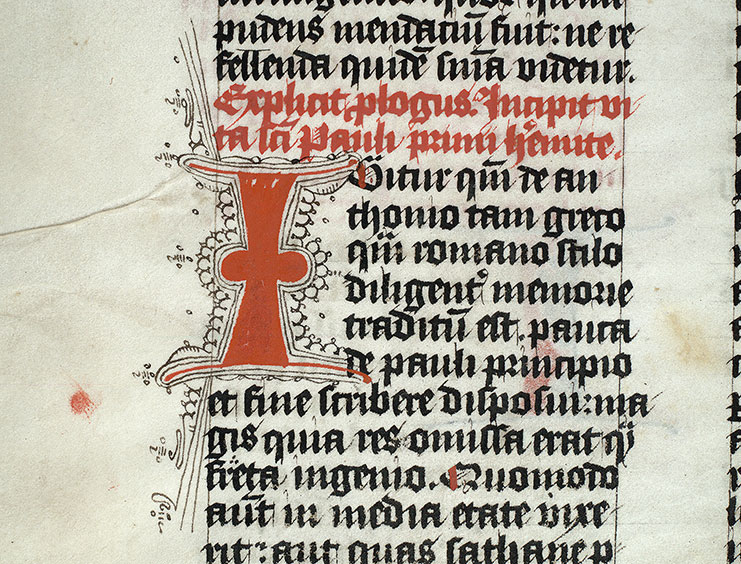 pudens mendaciū fiut: ne re
fellenda quidē sniā videtur.
Explicit ꝓlogus. Incipit vi
ta sc̄i Pauli primi h̓emite.
IGitur qm̄ de an
thonio tam greco
qm̄ romano stilo
diligent᷑ memorie
traditū est. pauca
de pauli principio
et fine scribere disposui: ma
gis quia res omissa erat qm̄
freta ingenio. Quomodo
aūt in media etate vixe
rit: aut quas sathane p